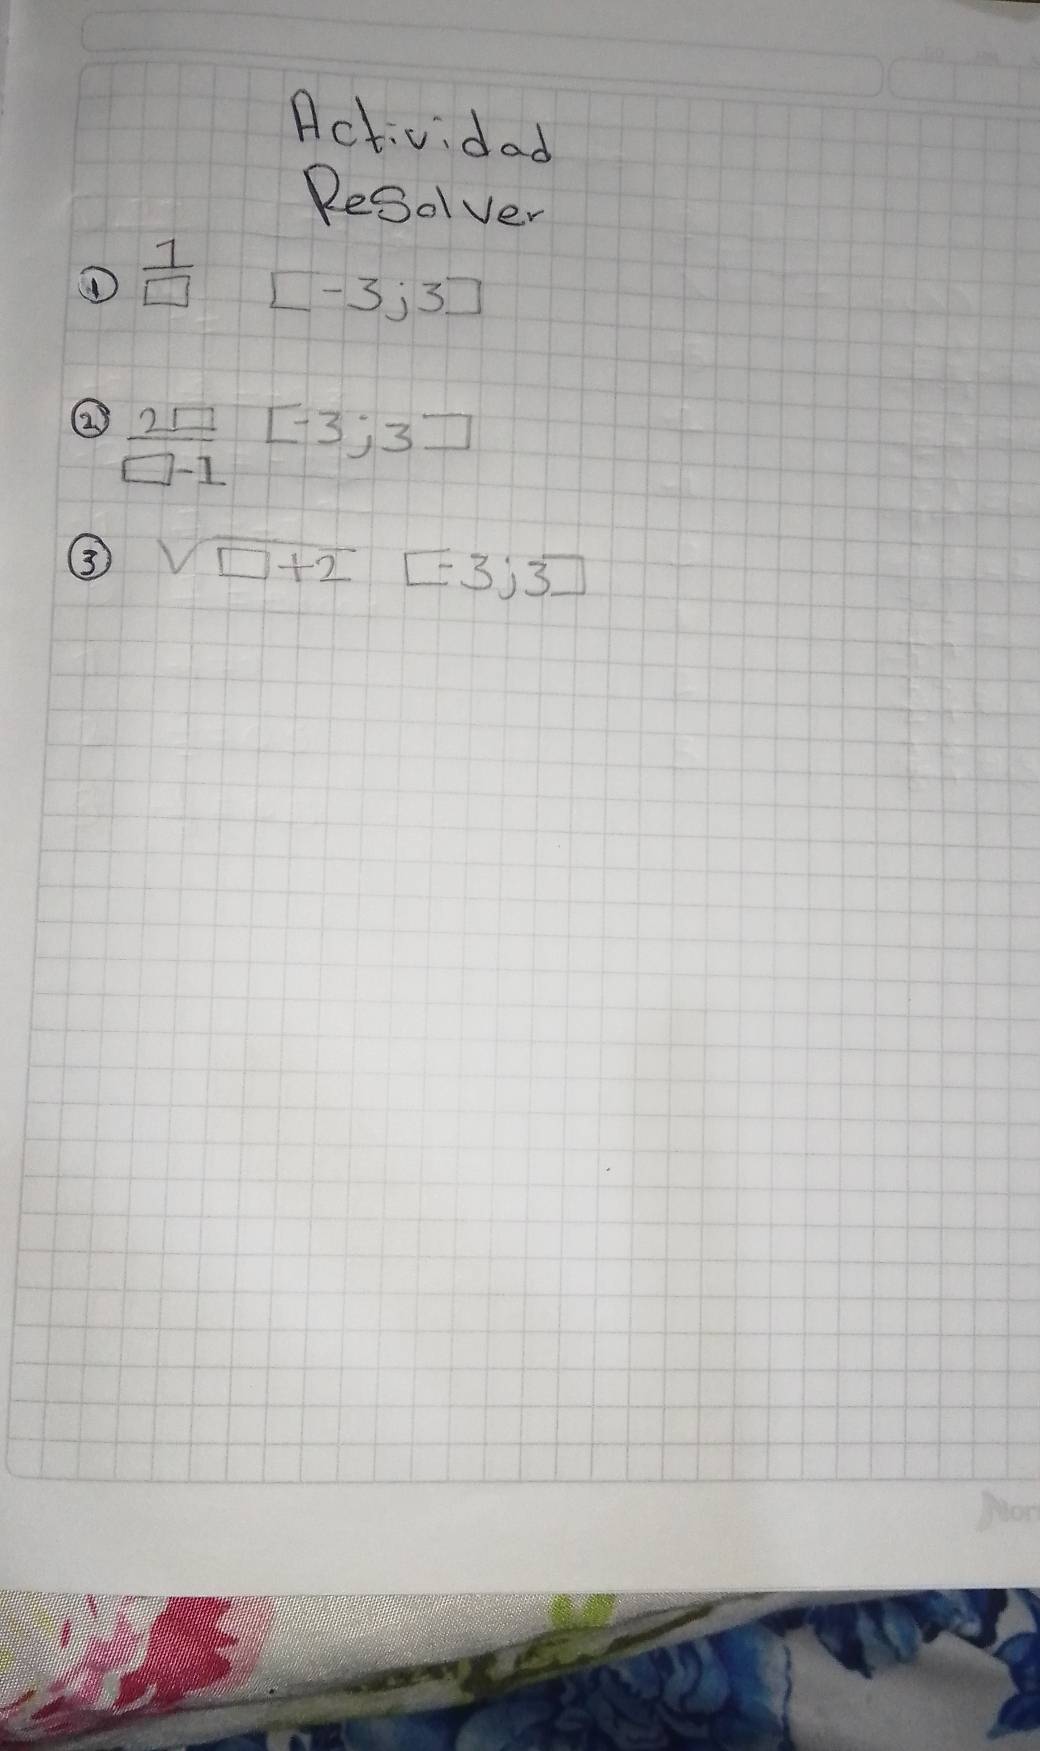 Actividad
Resolver
① 1/□ [-3;3]
② 2□/□-1 [-3;3]
③ √□+2 [-3;3]